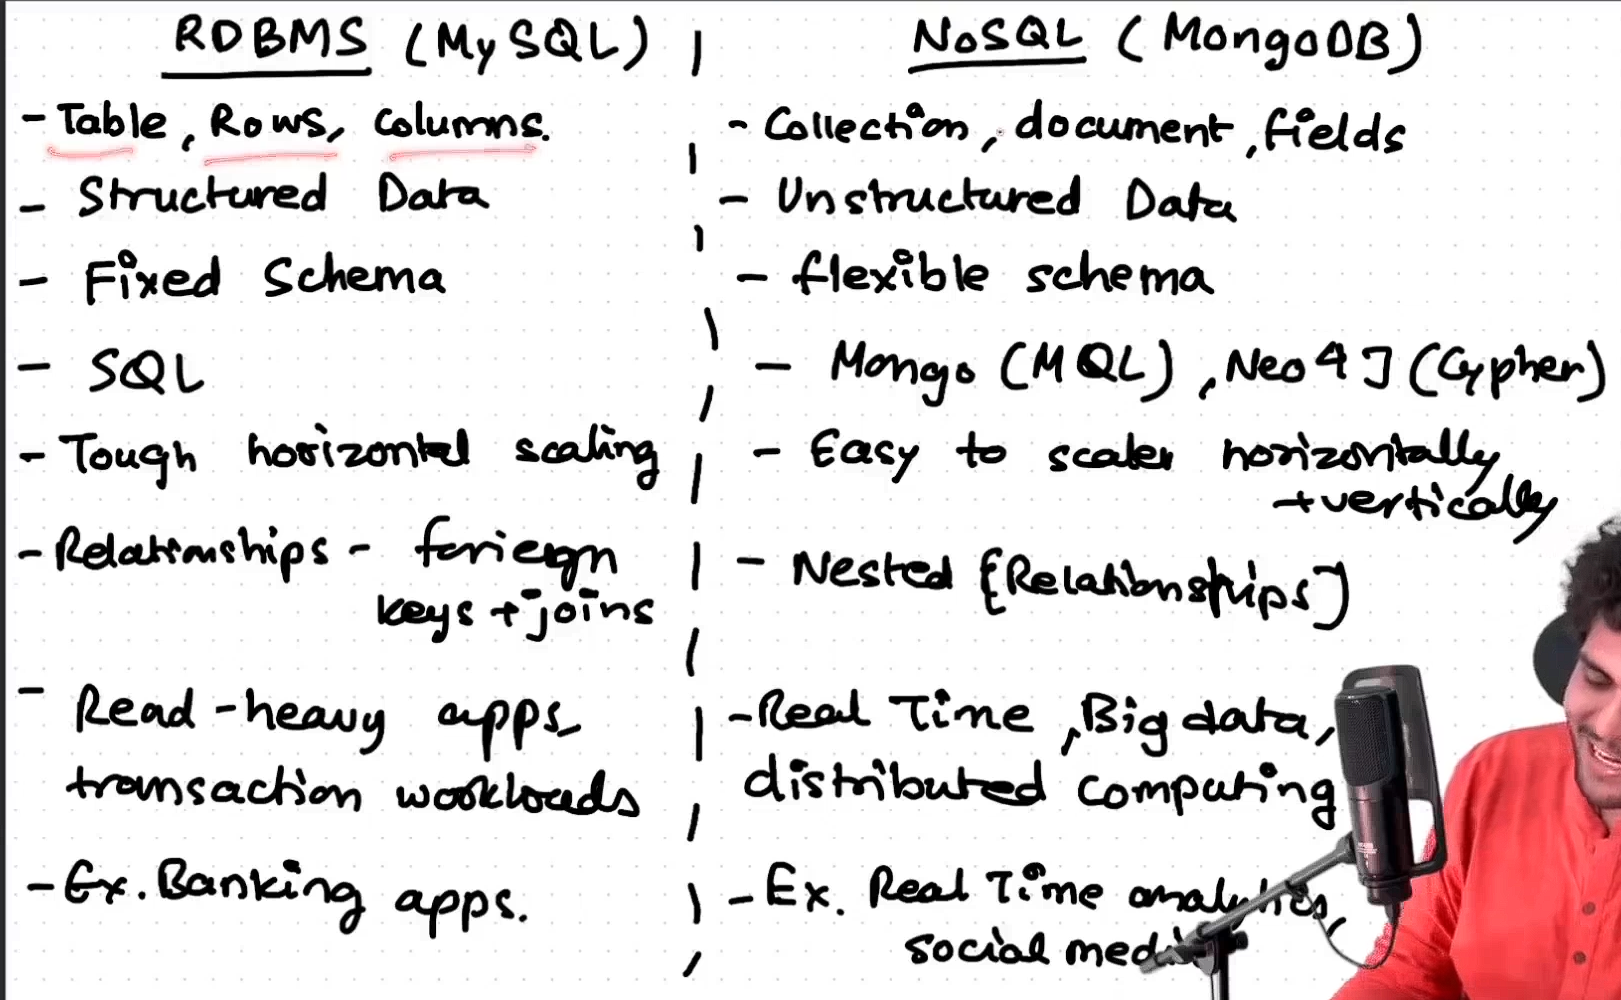 RDBMS (MySQL)
- Table, Rows, Columns.
- Structured Data
- Fixed Schema
- SQL
- Tough horizontal scaling
- Relationships - foriegn
keys + joins
- Read-heavy apps,
transaction workloads
- Ex. Banking apps.
NoSQL (MongoDB)
- Collection, document, fields
- Unstructured Data
- flexible schema
- Mongo (MQL), Neo4J (Cypher)
- Easy to scaler horizontally
+ vertically
- Nested [Relationships]
- Real Time, Big data,
distributed computing
- Ex. Real Time analytics,
social media